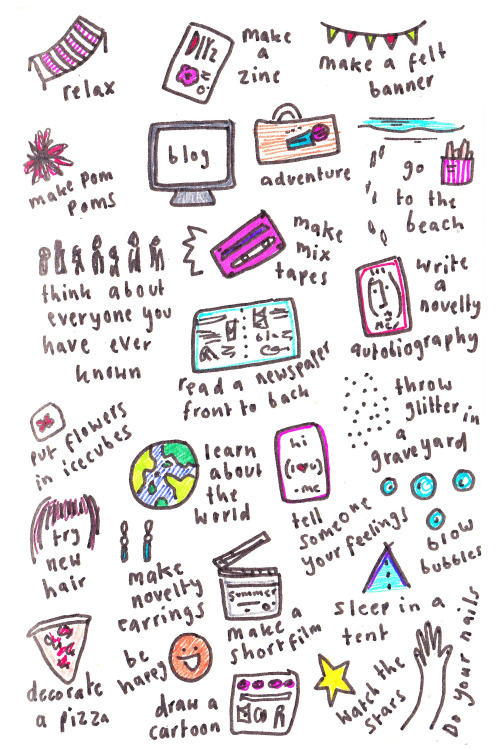 relax
make
a
zine
make a felt
banner
make pom
poms
blog
adventure
go
to the
beach
think about
everyone you
have ever
known
make
mix
tapes
write
a
novelty
autobiography
me
read a newspaper
front to back
put flowers
in icecubes
learn
about
the
world
hi
(I ♥ U)
• me
tell
someone
your feelings
throw
glitter in
a
graveyard
blow
bubbles
try
new
hair
make
novelty
earrings
summer
make a
short film
sleep in a
tent
decorate
a pizza
be
happy
draw a
cartoon
watch the
stars
Do your nails